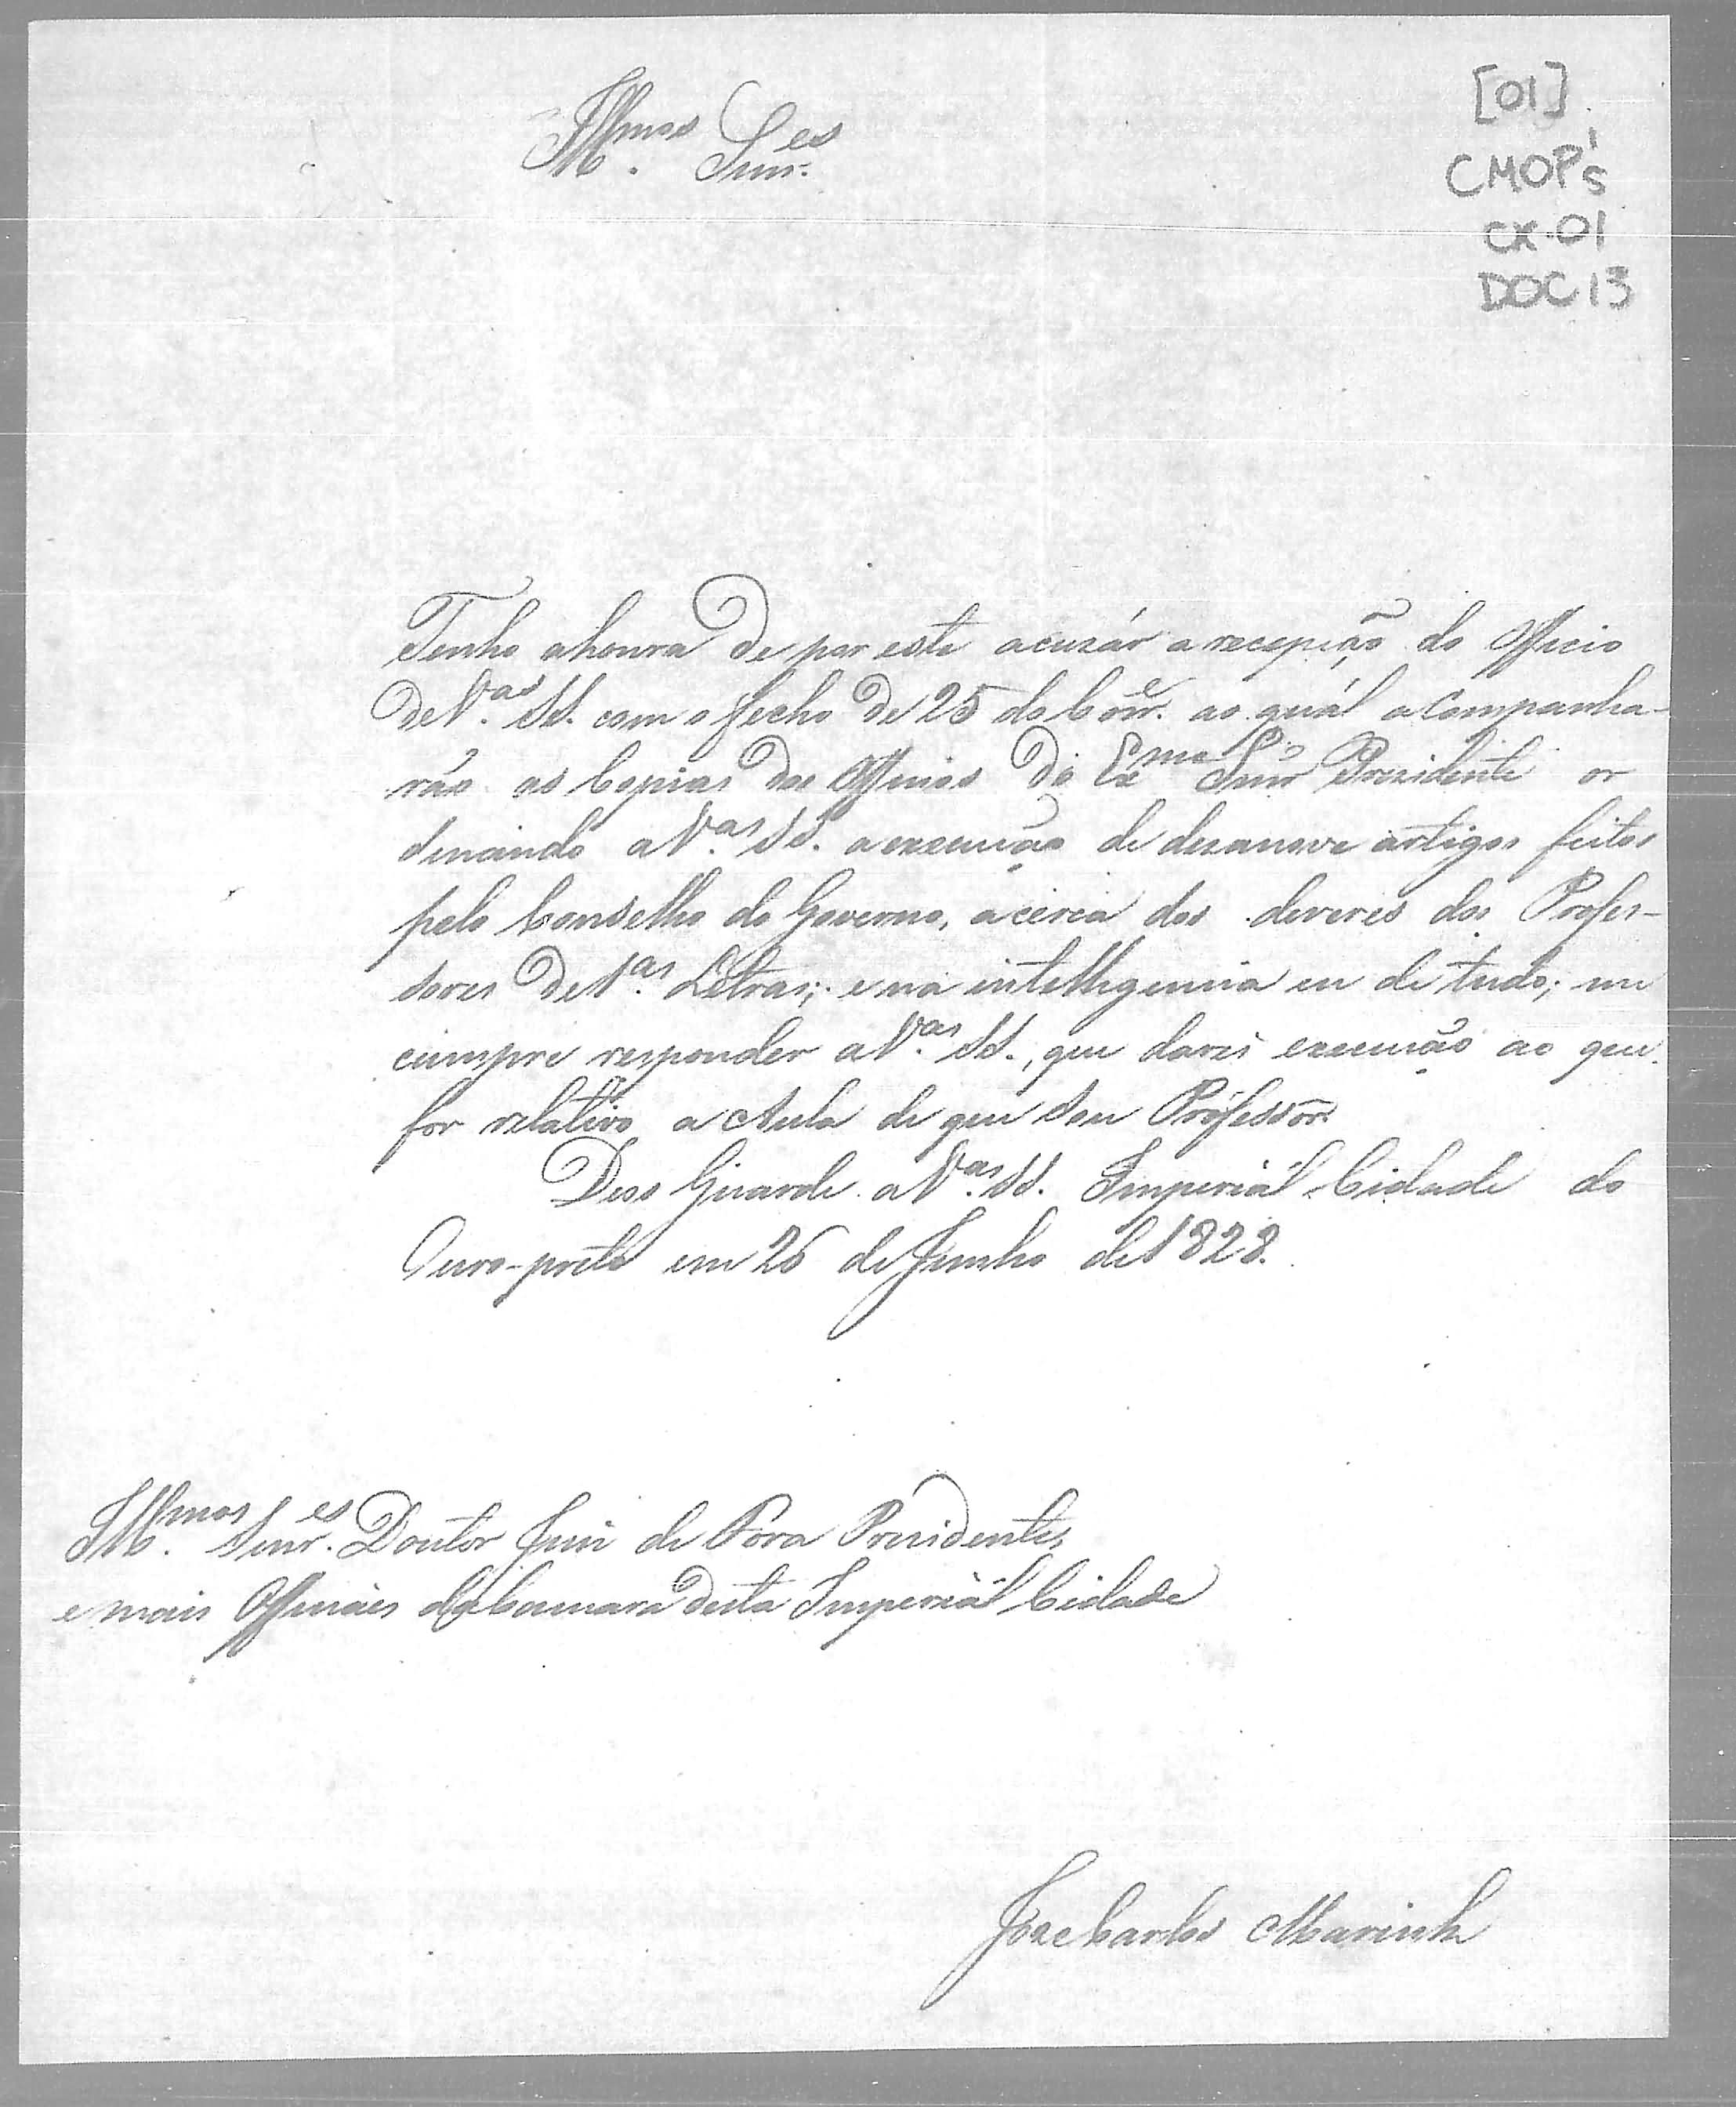 Illmos. Snr.es
[01]
CMOP's
CX.01
DOC 13
Tenho ahonra de por este acuzár a recepição do Officio
de V.as SS. com o fecho de 25 do Corr.e ao quál acompanha-
rão as Copias dos Officios do Exmo Snr Prezidente or
denando a V.as SS. a execução de dezanove artigos feitos
pelo Conselho do Governo, acerca dos deveres dos Profes-
sores de 1.as Letras; e na intelligencia eu de tudo; me
cumpre responder a V.as SS., que darei execução ao que
for relativo a Aula de que sou Proféssor.
Deos Guarde a V.as SS. Imperiál Cidade do
Ouro-preto em 26 de Junho de 1828.
Illmos. Snr.es Doutor Juiz de Fora Prezidente,
e mais Officiáes da Camara desta Imperiál Cidade
Joze Carlos Marinho